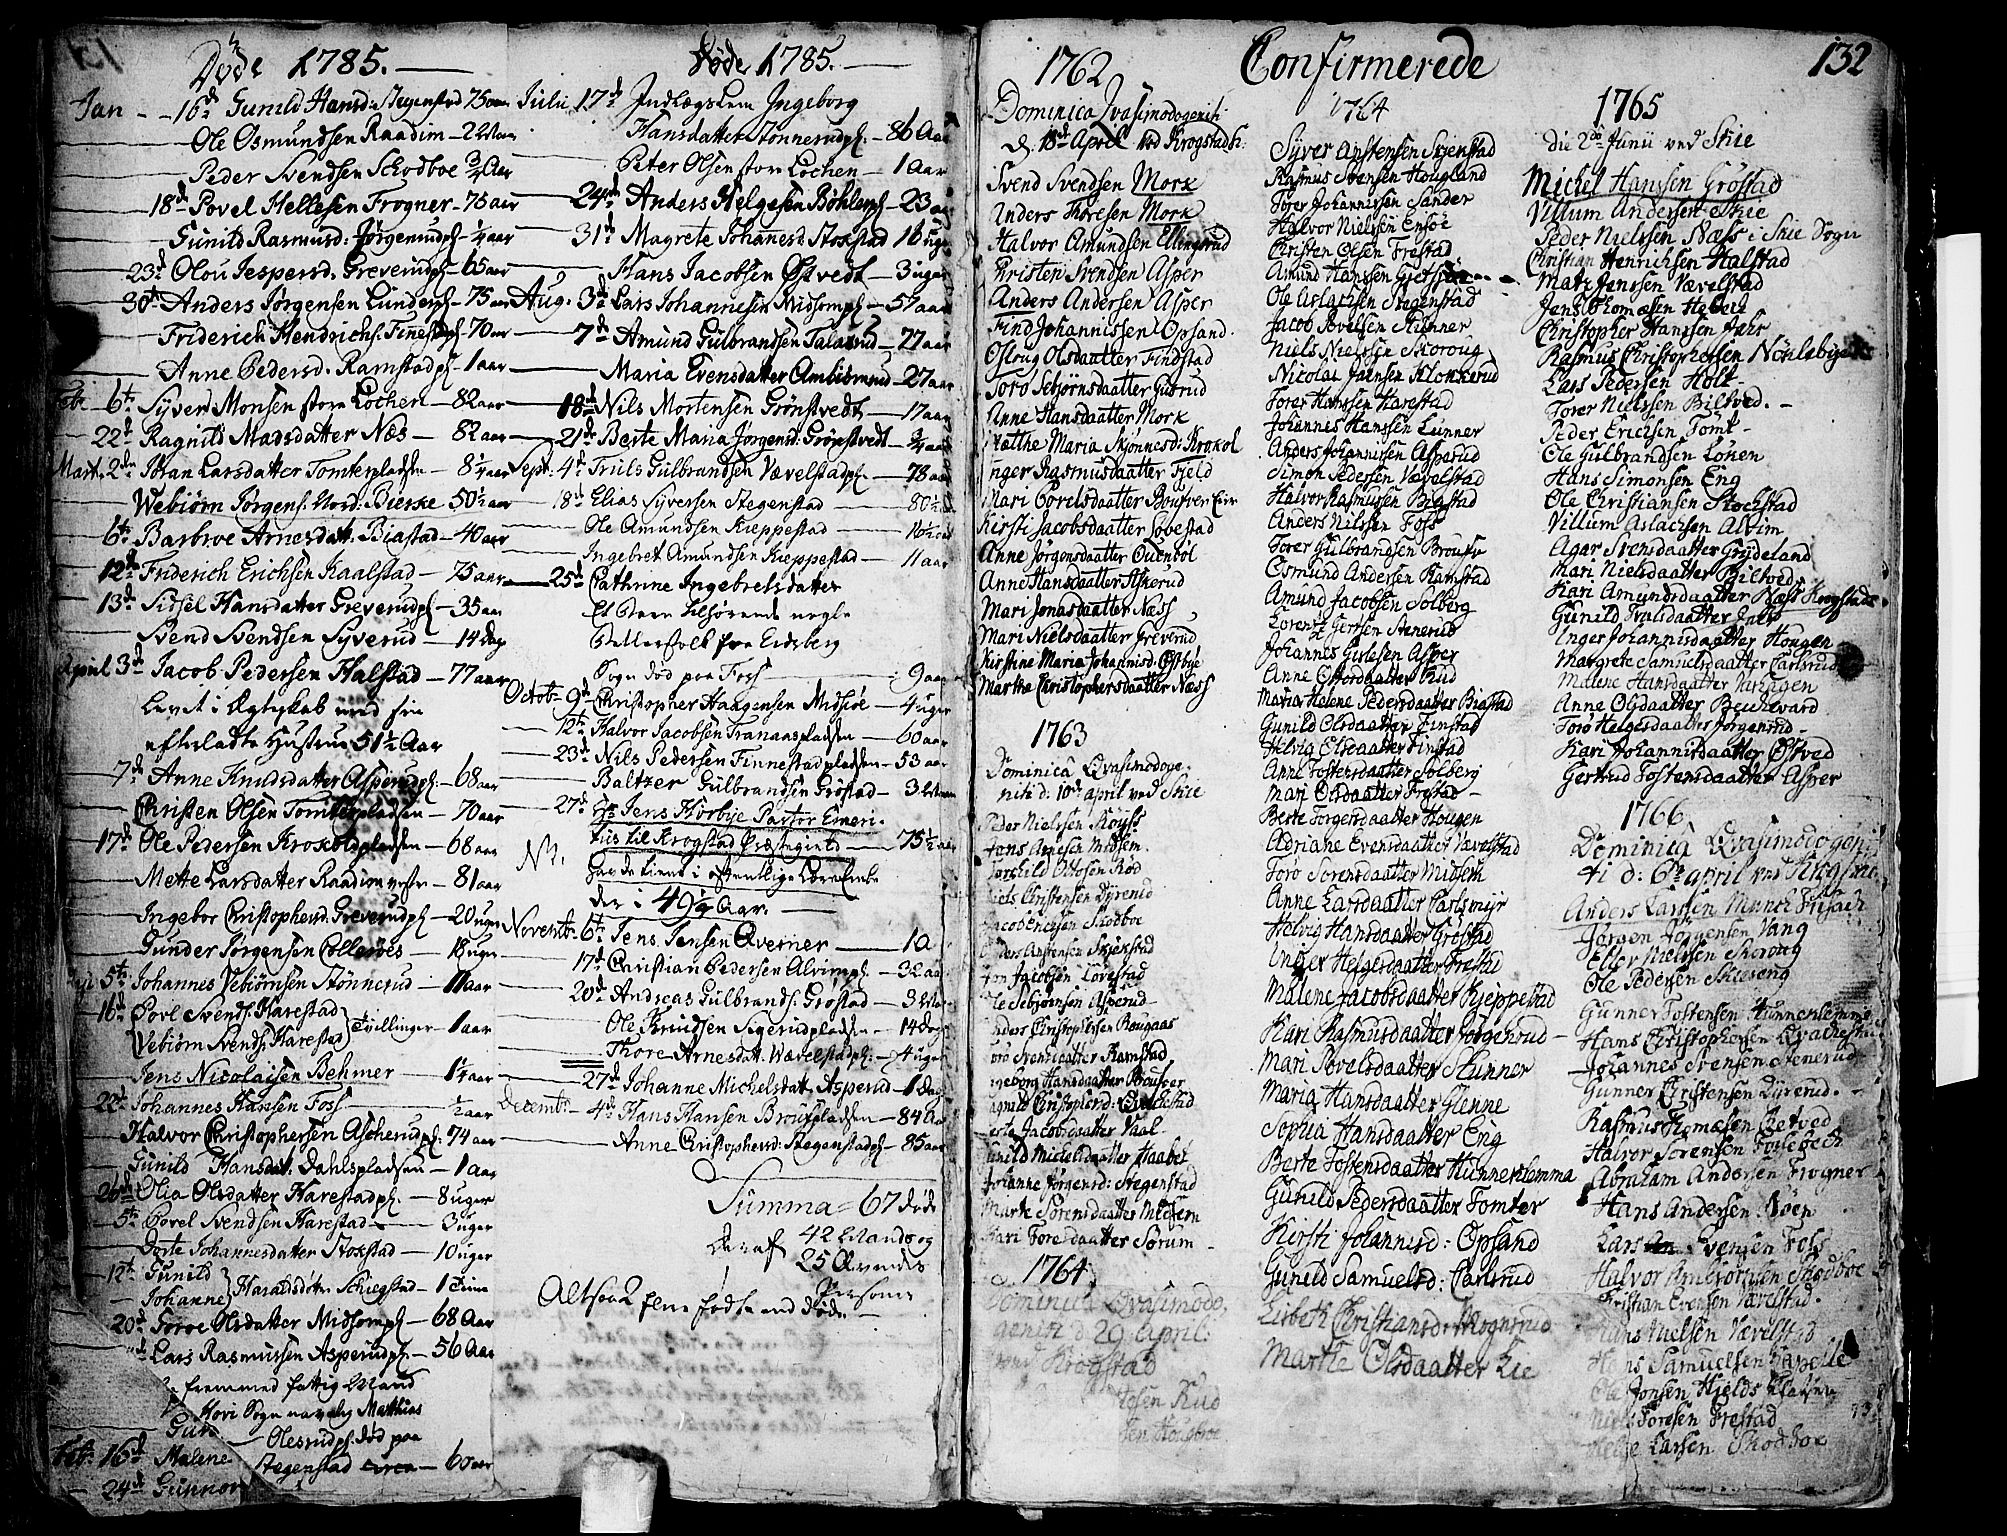 Døde 1785.
Jan 16d Gunild Hansd: Stegenstad 75 aar
Ole Osmundsen Raadim
Peder Svendsen Schodboe 3/4 Aar
18d Povel Hellesen Frogner 75 aar
Gunild Rasmusd: Jørgenrudpl 1/4 aar
23d Olou Jespersd. Greverudpl 65 aar
30te Anders Jørgensen Lunderpl 75 aar
Friderich Hendrichs: Finestadpl 70 aar
Anne Pedersd. Ramstadpl 1 aar
Feb. 6te Syver Monsen store Lochen 82 aar
22d Ragnild Madsdatter Næs 82 aar
Mart. 2den Karen Larsdatter Tomterpladsen 8 1/4 aar
Webiørn Jørgens: Nord: Bierke 50 1/2 aar
6te Barbroe Arnesdatt. Biastad 40 aar
12te Friderich Erichsen Kaalstad 75 aar
13d Sidsel Hansdatter Greverudpl 35 aar
Svend Svendsen Syverud 14 dag
April 3d Jacob Pedersen Halstad 77 aar
Levet i Ægteskab med sin
efterladte Hustrue 51 1/2 Aar
7d Anne Knudsdatter Asperudpl. 68 aar
Christen Olsen Tomterpladsen 70 aar
17d Ole Pedersen Kroxbølpladsen 68 aar
Mette Larsdatter Raadim vestr 81 aar
Ingebor Christophersd. Greverudpl 20 uger
Gunder Jørgensen Collerøes 18 uger
5te Johannes Vebiørnsen Stønnerud 11 aar
16d Povl Svends: Harestad
Vebiørn Svends: Harestad } Tvillinger 1 aar
Jens Nicolaisen Behmer 1 1/4 aar
22d Johannes Hansen Foss 1/2 aar
Halvor Christophersen Ascherudpl: 74 aar
Gunild Hansdat: Dahlspladsen 1 aar
26d Olia Olsdatter Harestadpl. 8 uger
5te Povel Svendsen Harestad 3 uger
Dorte Johannesdatter Stokstad 10 uger
12te Gunild
Johanne } Haraldsdøtr Schiegstad 1 time
20d Toroe Olsdatter Midsompl 68 Aar
Lars Rasmussen Asperudpl. 56 Aar
fremmed fattig Mand
Sogn navnlig Matthias
Olesrudpl. død paa
Feb: 16d Malene Stegenstad 60 aar
24d Gunnor
Døde 1785.
Julii 17d Indlægslem Ingeborg
Hansdatter Stønnerudpl. 86 Aar
Peter Olsen store Lochen 1 Aar
24d Anders Helgesen Bøhlerpl 23 aar
31d Magrete Johanesd. Stokstad 16 uger
Hans Jacobsen Østvedt 3 uger
Aug. 3d Lars Johannesen Midsompl 57 aar
7d Amund Gulbrandsen Talaarud 77 aar
Maria Evensdatter Ambiørnrud 27 aar
18d Nils Mortensen Grønstvedt 17 aar
21d Berte Maria Jørgensd. Grønstvedt 3/4 aar
Sept. 4d Truls Gulbrandsen Vævelstadpl 78 aar
18d Elias Syversen Stegenstad 80 1/2
Ole Amundsen Kieppestad 16 1/2
Ingebret Amundsen Kieppestad 11 aar
25d Cathrine Ingebretsdatter
Et Barn tilhørende nogle
Betlerfolk fra Eidsberg
Sogn død paa Foss 9 aar
Octob. 9d Christopher Haagensen Midsiøe 4 uger
12te Halvor Jacobsen Tranaaspladsen 60 aar
23d Nils Pedersen Finnestadpladsen 53 aar
Baltzer Gulbrandsen Grøstad
27d Hr. Jens Hørbye Pastor Emeri-
tus til Krogstad Præstegield 75 1/2 aar
NB. havde tient i offentlige Lære Embe
de i 49 1/2 Aar.
Novemb. 6te Jens Jensen Qverner 1 a
17d Christian Pedersen Alvimpl. 32 aar
20d Andreas Gulbrands: Grøstad
Ole Knudsen Sigerudpladsen 14 dag
Thore Arnesdat: Wævelstadpl. 4 uger
27d Johanne Michelsdat. Asperud 1 dag
Decemb. 4d Hans Hansen Brouspladsen 84 Aa
Anne Christophersd: Stegenstadpl. 85 aar
Summa = 67 døde
deraf 42 Mands og
25 Qvindes
Personer
Altsaa 2 flere fødte end døde.
Confirmerede
132
1762
Dominica Qvasimodogeniti
d. 18d April ved Krogstad K:
Svend Svendsen Mork
Anders Thoresen Mork
Halvor Amundsen Ellingsrud
Christen Svendsen Asper
Anders Andersen Asper
Find Johannissen Opsand.
Oslaug Olsdaatter Findstad
Torø Sebjørnsdaatter Gutrud
Anne Hansdaatter Mork
Mætthe Maria Skjønnesd: Kroxbøl
Inger Rasmusdaatter Fjeld
Mari Povelsdaatter Bousver Eie
Kirsti Jacobsdaatter Lovestad
Anne Jørgensdaatter Qvenbøl
Anne Hansdaatter Askerud
Mari Jonasdaatter Næss
Mari Nielsdaatter Greverud
Kirstine Maria Johannisd: Østbye
Marthe Christophersdaatter Næss
1763
Dominica Qvasimodoge-
niti d: 10de April ved Skie
Peder Nielssen Røiss
Jens Arnesen Midsem
Torchild Ottosen Rød
Niels Christensen Dyrerud
Jacob Enersen Skodboe
Anders Anstensen Skjekstad
Jon Jacobsen Lovestad
Ole Sebjørnsen Asperud
Anders Christophersen Bougaas
Torø Svensdaatter Ramstad
Ingeborg Hansdaatter Bousver
Ragnild Christopherd: Qvechestad
Berte Jacobsdaatter Vaal
Gunild Michelsdaatter Haabet
Johanne Jørgensd: Stegenstad
Marte Sørensdaatter Midsem
Kari Toresdaatter Sørum
1764
Dominica Qvasimodo-
geniti d 29 April:
ved Krogstad
Tosen Rud
sen Hougboe
1764
Syver Anstensen Skjenstad
Rasmus Svensen Hougland
Torer Johannissen Sander
Halvor Nielssen Ensøe
Christen Olsen Frestad
Amund Hanssen Gjetsjøe
Ole Aslachsen Stegenstad
Jacob Povelsen Skunner
Niels Nielssen Skoroug
Nicolai Jansen Klokkerud
Torer Hanssen Harestad
Johannes Hanssen Lunner
Anders Johannissen Asperud
Simon Pedersen Vævelstad
Halvor Rasmussen Bigstad
Anders Nilssen Foss
Torer Gulbrandsen Brousve
Osmund Andersen Ramstad
Amund Jacobsen Solberg
Lorentz Gertsen Stenerud
Johannes Gislesen Asper
Anne Olfordaatter Rud
Maria Helene Pedersdaatter Biastad
Gunild Olsdaatter Finstad
Helvig Olsdaatter Finstad
Anne Tostensdaatter Solberg
Mari Olsdaatter Frestad
Berte Torgersdaatter Hougen
Adriane Evensdaatter Vævelstad
Torø Sørensdaatter Midsem
Anne Larsdaatter Carlsmyr
Helvig Hansdaatter Grøstad
Inger Helgesdaatter Frestad
Malene Jacobsdaatter Kjeppestad
Kari Rasmusdaatter Jørgenrud
Mari Povelsdaatter Skunner
Maria Hansdaatter Glenne
Sophia Hansdaatter Eng
Berte Tostensdaatter Hunnerslemma
Gunild Pedersdaatter Tomter
Kirsti Johannisd: Opsand
Gunild Samuelsd: Carlsrud
Lisbeth Christiansd: Mognsrud
Marthe Olsdaatter Lie
1765
die 2do Junii ved Skie
Michel Hanssen Grøstad
Villum Andersen Skie
Peder Nielssen Næss i Skie Sogn
Christian Henrichsen Halstad
Matz Jenssen Vævelstad
Jens Thomæsen Hebeck
Christopher Hanssen Aahs
Rasmus Christophersen Nøhlebye
Lars Pedersen Holt
Torer Nielssen Biltved.
Peder Erichsen Tomt
Ole Gulbrandsen Løken
Hans Simonsen Eng
Ole Christiansen Stochstad
Villum Aslachsen Alvim
Agar Svensdaatter Grydeland
Mari Nielsdaatter Biltved
Kari Amundsdaatter Næss Krogstads.
Gunild Trulsdaatter Aahs
Inger Johannisdaatter Hougen
Margrete Samuelsdaatter Carlsrud
Malene Hansdaatter Vartzigen
Anne Olsdaatter Bechevard
Torø Helgesdaatter Jørgenrud
Kari Johannisdaatter Østved
Gertrud Tostensdaatter Asper
1766
Dominica Qvasimodogeni
ti d: 6te April ved Krogstad.
Anders Larssen
Jørgen Jørgensen Vang
Eller Nielssen Skoroug
Ole Pedersen Skieseng
Gunner Tostensen Hunnerslemma
Hans Christophersen Qvachestad
Johannes Svensen Stenerud
Gunner Christensen Dyrerud.
Rasmus Thomæsen Tvetved
Halvor Sørensen Fuglebech
Abraham Andersen Frogner
Hans Andersen Moen
Lars Svensen Foss
Halvor Ambjørnsen Skodboe
Kristian Evensen Vævelstad.
Hans Nielsen Vævelstad
Hans Samuelsen Kapelle
Ole Jonsen Hjelds
Niels Toresen Frestad
Helge Larssen Skodboe